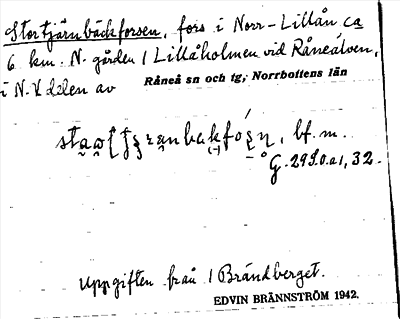 Stortjärnbäckforsen, fors i Norr-Lillån ca
6 km. N. gården 1 Lillåholmen vid Råneälven,
i N.V delen av Råneå sn och tg, Norrbottens län
bf. m.
G. 29 S.0.a1, 32.
Uppgiften från 1 Brändberget.
EDVIN BRÄNNSTRÖM 1942.